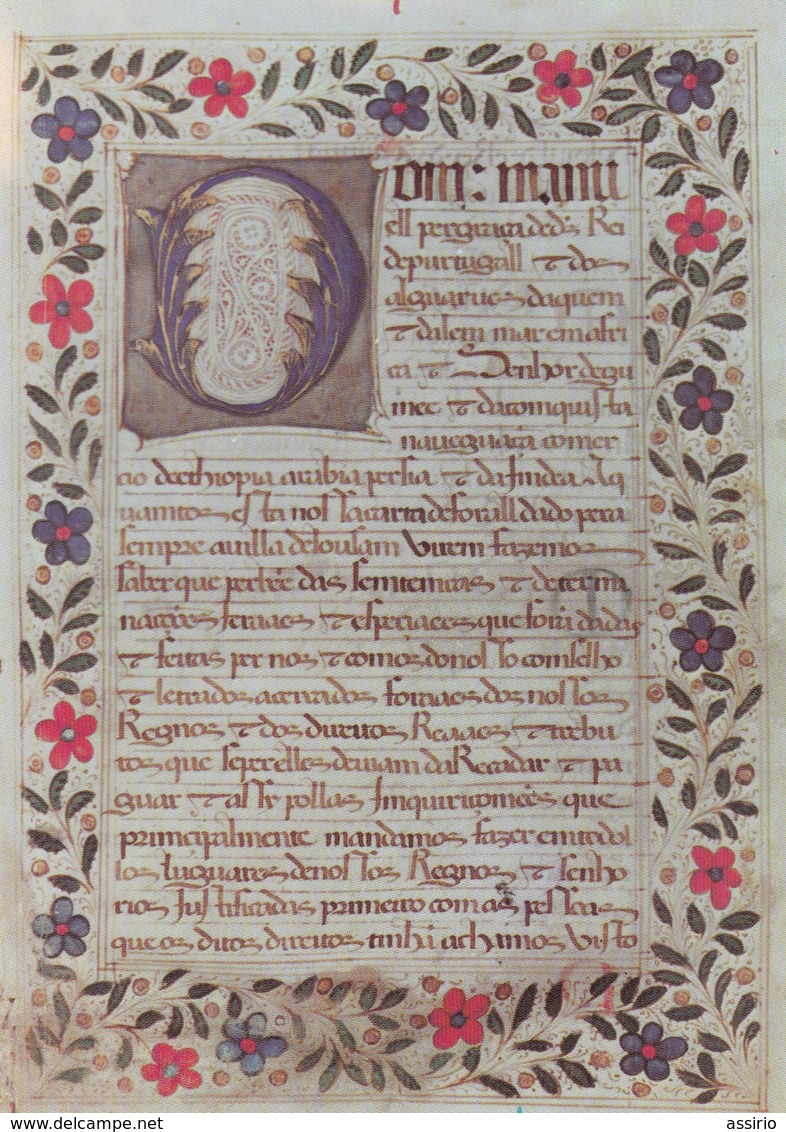 Dom: manu
ell per graça de ds Rei
de purtugall τ dos
alguarues daquem
τ dalem mar em afri
ca τ Senhor de gui
nee τ da comquista
naueguaçã comer
cio dethiopia arabia persia τ da Jmdia A q
uamtos esta nossa carta de forall dado pera
sempre a uilla de lousam virem fazemos
saber que per bẽ das semtemças τ determi
nações jeraaes τ espeçiaees que forã dadas
τ feitas per nos τ com os do nosso comselho
τ leterados açerca dos foraaes dos nossos
Regnos τ dos direitos Reaaes τ trebu
tos que se per elles deuiam daRecadar τ pa
guar τ assy pollas Jmquiriçomes que
primcipalmente mandamos fazer em todol
los luguares de nossos Regnos τ senho
rios Justificadas primeiro com as pessoas
que os ditos direitos tinhã achamos visto
assirio
www.delcampe.net